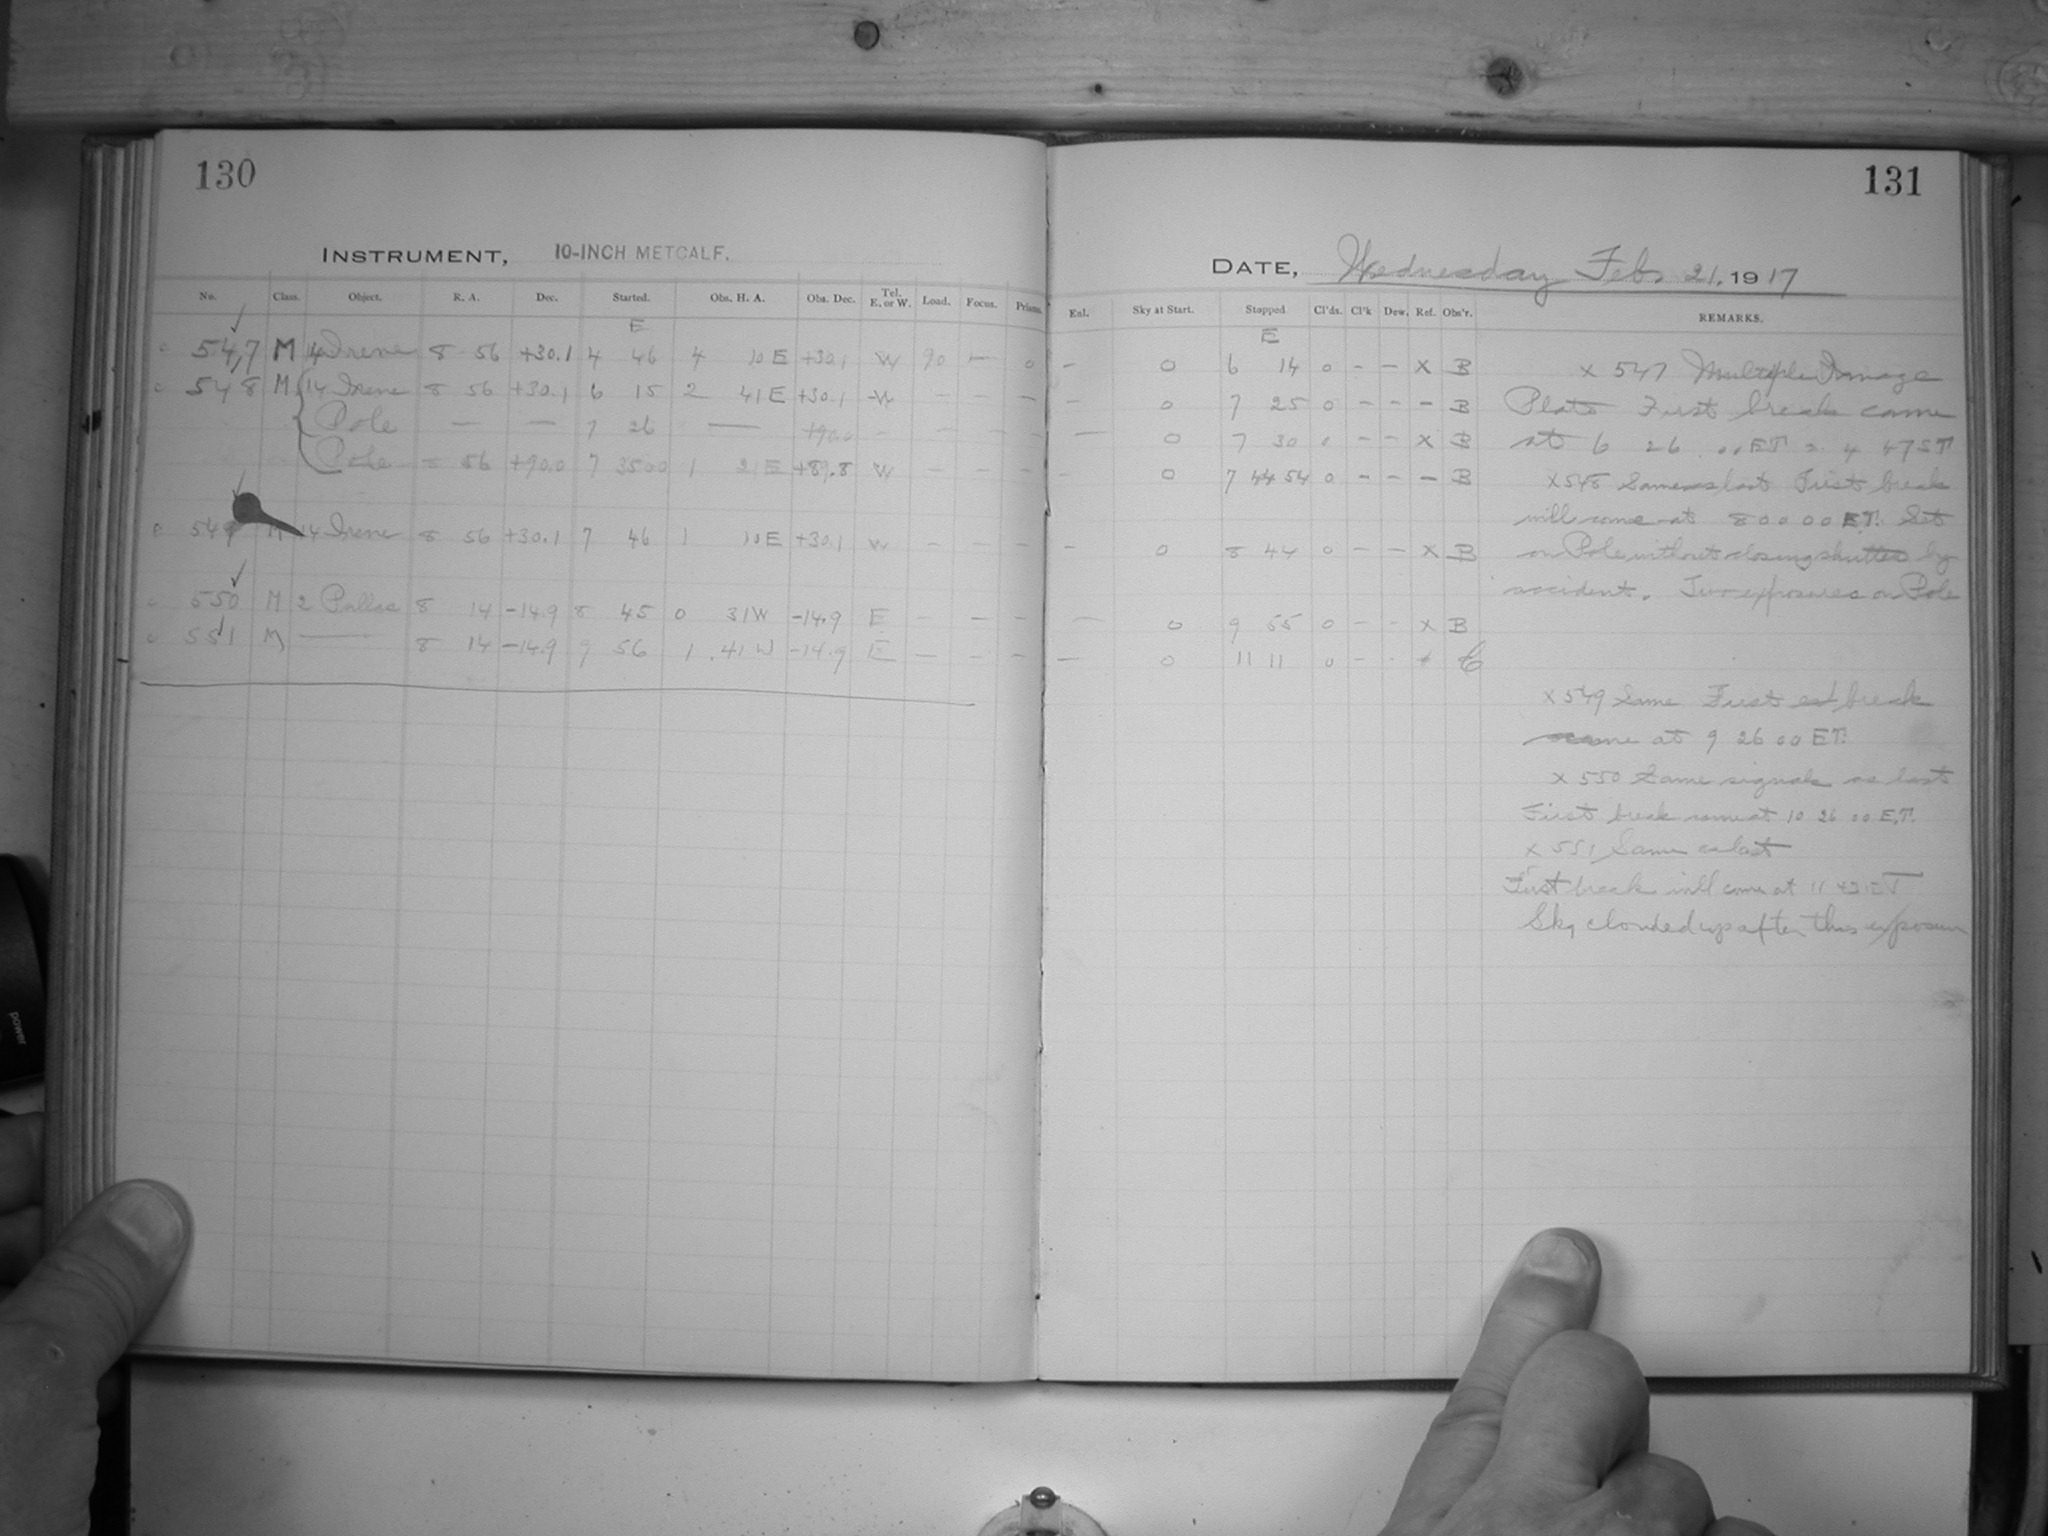 130
131
INSTRUMENT, 10-INCH METCALF.
DATE, Wednesday Feb. 21, 1917
No. Class. Object. R. A. Dec. Started. Obs. H. A. Obs. Dec. Tel. E. or W. Load. Focus. Prisms.
Enl. Sky at Start. Stopped Cl'ds. Cl'k Dew. Ref. Obs'r. REMARKS.
E
E
547 M 14 Irene 8 56 +30.1 4 46 4 10 E +30.1 W 90 — 0
– 0 6 14 0 – – X B
548 M 14 Irene 8 56 +30.1 6 15 2 41 E +30.1 W – – –
– 0 7 25 0 – – – B
Pole — — 7 26 — +90.0 – – – –
— 0 7 30 – – X B
Pole 56 +90.0 7 35 00 1 21 E +89.8 W – – –
– 0 7 44 54 0 – – – B
549 M 14 Irene 8 56 +30.1 7 46 1 10 E +30.1 W – – –
– 0 8 44 0 – – X B
550 M 2 Pallas 8 14 -14.9 8 45 0 31 W -14.9 E – – –
— 0 9 55 0 – – X B
551 M — 8 14 -14.9 9 56 1 41 W -14.9 E – – –
— 0 11 11 0 –
X 547 Multiple Image
Plate First break came
at 6 26 00 ET = 4 47 ST
X 548 Same as last First break
will come at 8 00 00 ET. Set
on Pole without closing shutter by
accident. Two exposures on Pole
X 549 Same First break
at 9 26 00 ET.
X 550 Same signals as last
First break came at 10 26 00 E.T.
X 551 Same as last
First break will come at 11 ET
Sky clouded up after this exposure
power